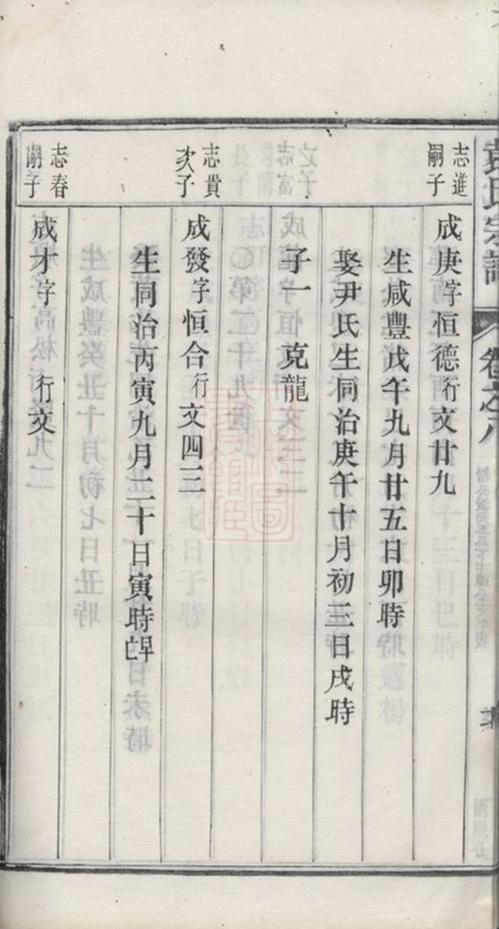 志進嗣子
成庚字恒德行文廿九
生咸豐戊午九月廿五日卯時
娶尹氏生同治庚午十月初三日戌時
子一 克龍
志貴次子
成發字恒合行文四三
生同治丙寅九月二十日寅時早亡
志春嗣子
成才字 行文